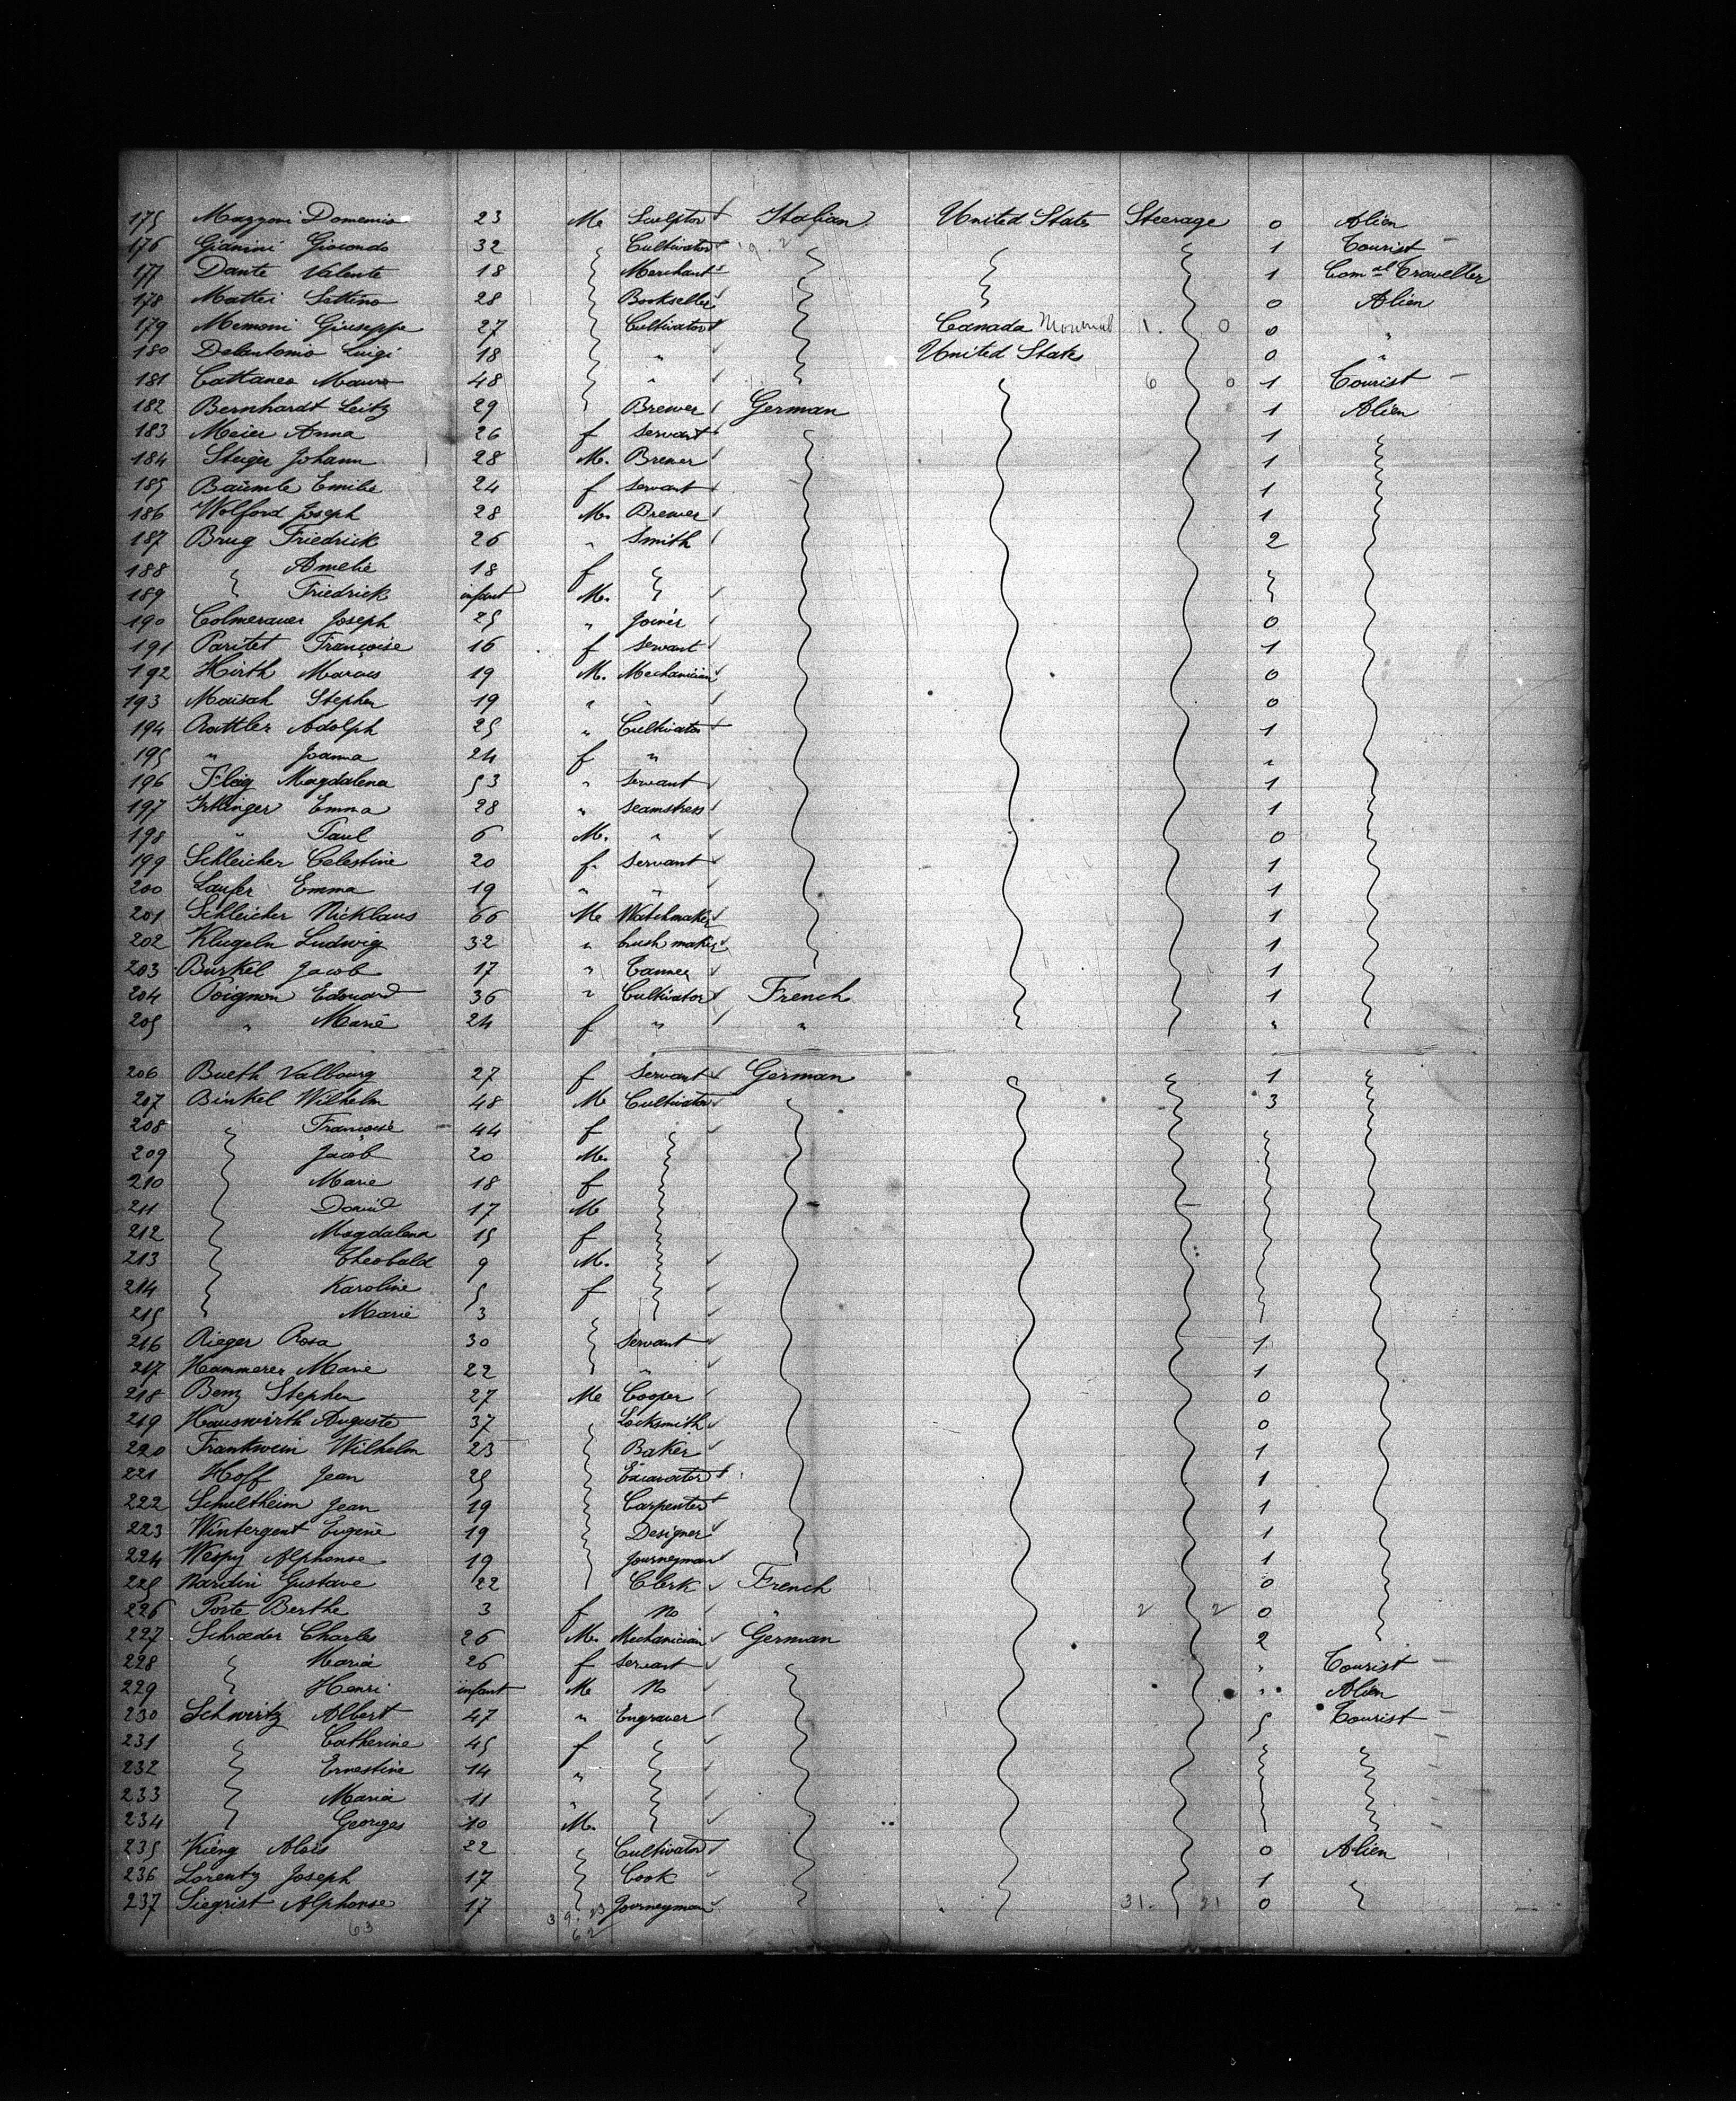 175 Mazzoni Domenico 23 M. Sculptor Italian United States Steerage 0 Alien
176 Gianini Giocondo 32 Cultivator 1 Tourist
177 Dante Valente 18 Merchant 1 Com.al Traveller
178 Mattei Settimo 28 Bookseller 0 Alien
179 Memoni Giuseppe 27 Cultivator Canada 1. 0 0 "
180 Delantonio Luigi 18 " United States 0 "
181 Cattaneo Mauro 48 " 6 0 1 Tourist
182 Bernhardt Leitz 29 Brewer German 1 Alien
183 Meier Anna 26 f servant 1
184 Steiger Johann 28 M. Brewer 1
185 Bäumle Emilie 24 f servant 1
186 Wolford Joseph 28 M. Brewer 1
187 Brug Friedrick 26 " Smith 2
188 Amelie 18 f
189 Friedrick infant M.
190 Colmerauer Joseph 25 " Joiner 0
191 Paritet Françoise 16 f servant 1
192 Hirth Marcus 19 M. Mechanician 0
193 Stephen 19 " " 0
194 Adolph 25 " Cultivator 1
195 " Joanna 24 f " "
196 Flaig Magdalena 53 " servant 1
197 Emma 28 " seamstress 1
198 " Paul 6 M. " 0
199 Schleicher Celestine 20 f. servant 1
200 Laufer Emma 19 " " 1
201 Schleicher Nicklaus 66 M. Watchmaker 1
202 Klugeln Ludwig 32 " brush maker 1
203 Burkel Jacob 17 " Tanner 1
204 Poignon Edouard 36 " Cultivator French 1
205 " Marie 24 f " " "
206 Bueth Valbourg 27 f Servant German 1
207 Binkel Wilhelm 48 M Cultivator 3
208 Françoise 44 f
209 Jacob 20 M.
210 Marie 18 f
211 David 17 M
212 Magdalena 15 f
213 Theobald 9 M.
214 Karoline 5 f
215 Marie 3
216 Rieger Rosa 30 Servant 1
217 Hammerer Marie 22 " 1
218 Benz Stephen 27 M. Cooper 0
219 Hauswirth Auguste 37 Locksmith 0
220 Frantwein Wilhelm 23 Baker 1
221 Hoff Jean 25 Excavator 1
222 Schultheim Jean 19 Carpenter 1
223 Wintergent Eugène 19 Designer 1
224 Wespy Alphonse 19 Journeyman 1
225 Nardin Gustave 22 Clerk French 0
226 Porte Berthe 3 f No " 2 2 0
227 Schrœder Charles 26 M. Mechanician German 2
228 Maria 26 f servant " Tourist
229 Henri infant M No " Alien
230 Schwirtz Albert 47 " Engraver 5 Tourist
231 Catherine 45 f
232 Ernestine 14 "
233 Maria 11 "
234 Georges 10 M.
235 Kieng Aloïs 22 Cultivator 0 Alien
236 Lorentz Joseph 17 Cook 1
237 Siegrist Alphonse 17 Journeyman 31. 21 0
63 62